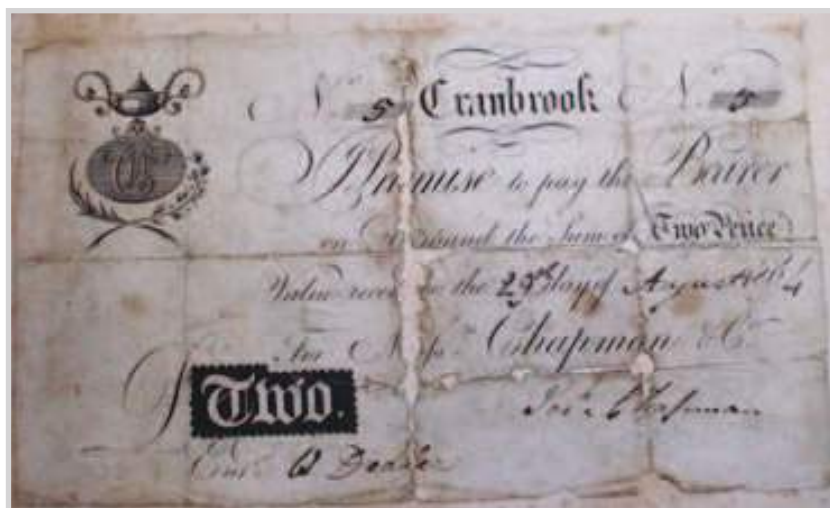 No 5 Cranbrook No 5
CB
I Promise to pay the Bearer
on Demand the Sum of Two Pence
Value received the day of
For Messrs. Chapman & Co.
Two.
Jos. Chapman
Entd.